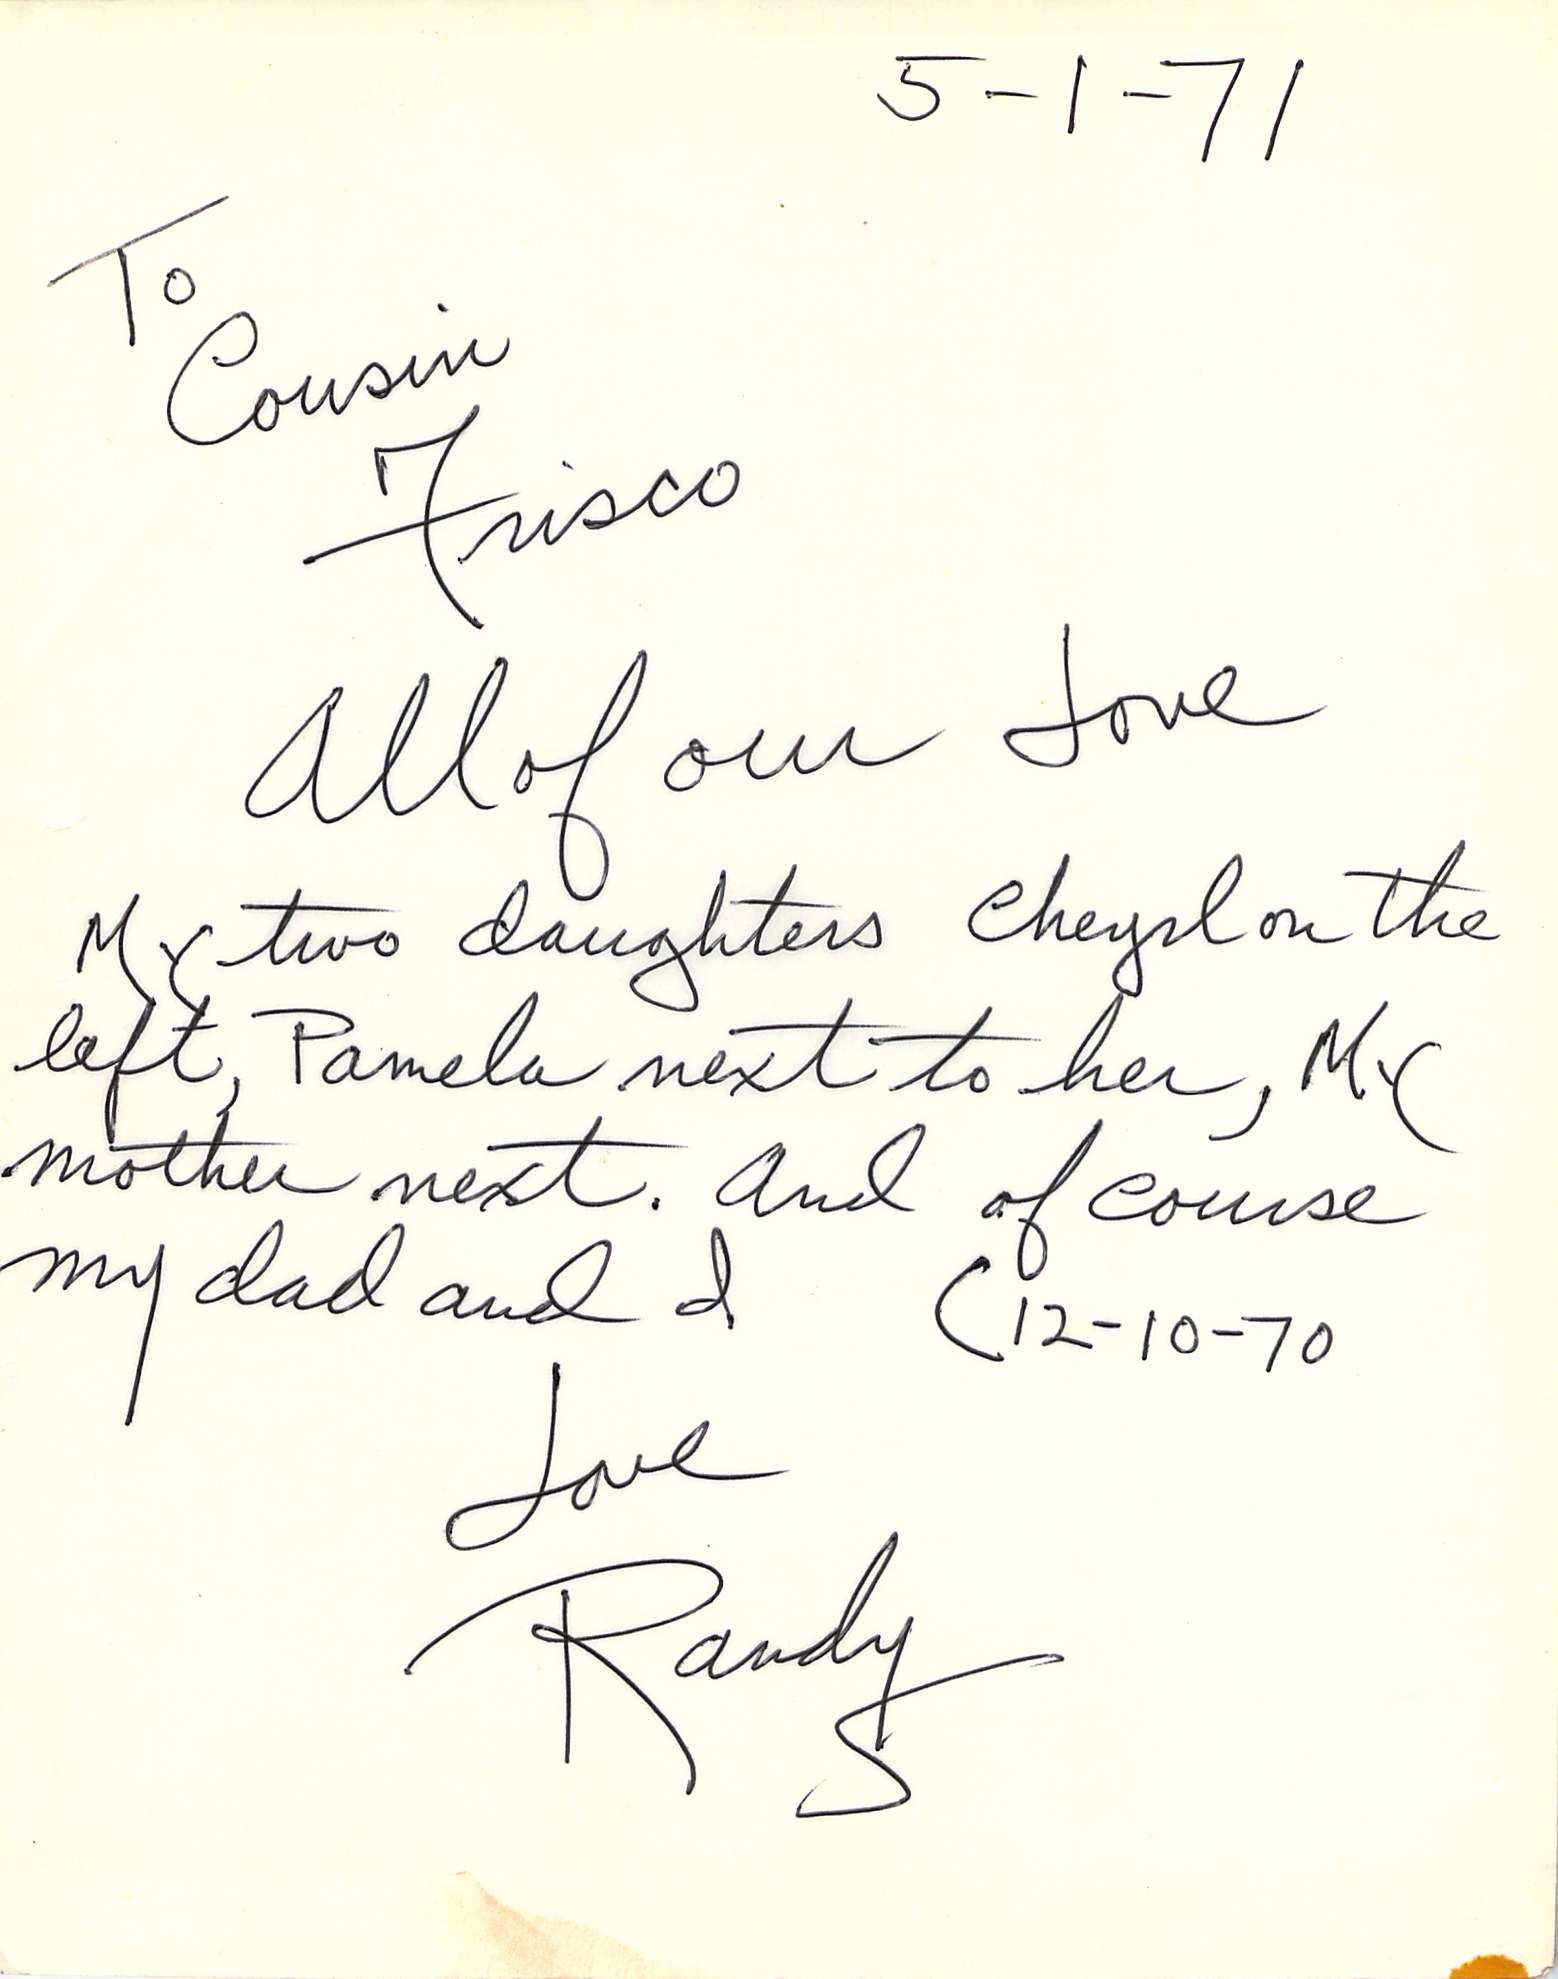 5-1-71
To
Cousin
Frisco
All of our Love
My two daughters Cheyrl on the
left, Pamela next to her, My
mother next. And of course
my dad and I (12-10-70
Love
Randy